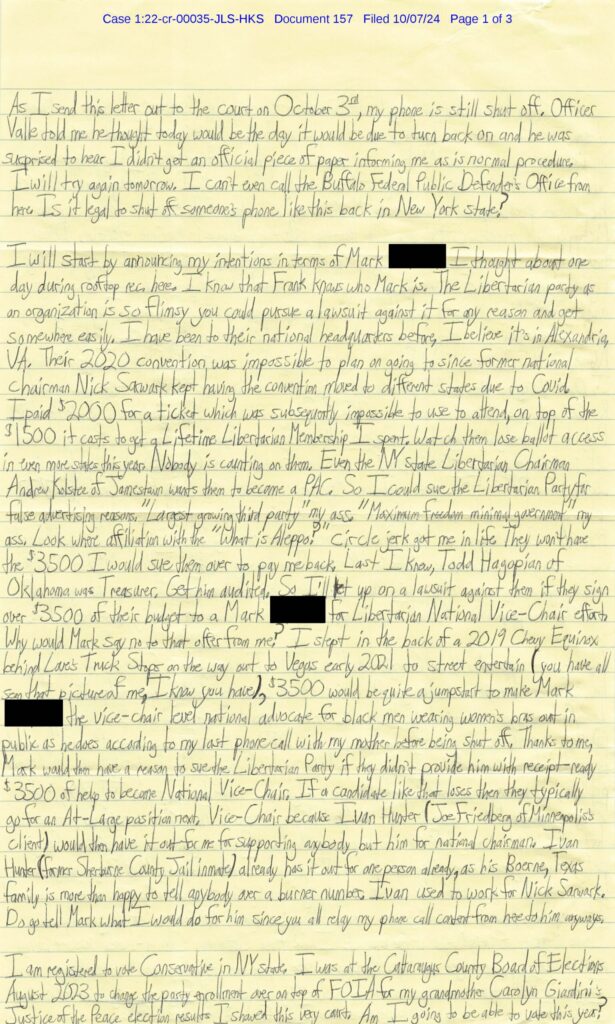 Case 1:22-cr-00035-JLS-HKS Document 157 Filed 10/07/24 Page 1 of 3
As I send this letter out to the court on October 3rd, my phone is still shut off. Officer
Valle told me he thought today would be the day it would be due to turn back on and he was
surprised to hear I didn't get an official piece of paper informing me as is normal procedure.
I will try again tomorrow. I can't even call the Buffalo Federal Public Defender's Office from
here. Is it legal to shut off someone's phone like this back in New York state?
I will start by announcing my intentions in terms of Mark I thought about one
day during rooftop rec. here. I know that Frank knows who Mark is. The Libertarian party as
an organization is so flimsy you could pursue a lawsuit against it for any reason and get
somewhere easily. I have been to their national headquarters before, I believe it's in Alexandria,
VA. Their 2020 convention was impossible to plan on going to since former national
chairman Nick Sarwark kept having the convention moved to different states due to Covid.
I paid $2000 for a ticket which was subsequently impossible to use to attend, on top of the
$1500 it costs to get a Lifetime Libertarian Membership I spent. Watch them lose ballot access
in even more states this year. Nobody is counting on them. Even the NY state Libertarian Chairman
Andrew Kolstee of Jamestown wants them to become a PAC. So I could sue the Libertarian Party for
false advertising reasons. "Largest growing third party" my ass. "Maximum freedom minimal government" my
ass. Look where affiliation with the "What is Aleppo?" circle jerk got me in life. They won't have
the $3500 I would sue them over to pay me back. Last I know, Todd Hagopian of
Oklahoma was Treasurer. Get him audited. So I'll let up on a lawsuit against them if they sign
over $3500 of their budget to a Mark for Libertarian National Vice-Chair effort.
Why would Mark say no to that offer from me? I slept in the back of a 2019 Chevy Equinox
behind Love's Truck Stops on the way out to Vegas early 2021 to street entertain (you have all
seen that picture of me, I know you have), $3500 would be quite a jumpstart to make Mark
the vice-chair level national advocate for black men wearing women's bras out in
public as he does according to my last phone call with my mother before being shut off. Thanks to me,
Mark would then have a reason to sue the Libertarian Party if they didn't provide him with receipt-ready
$3500 of help to become National Vice-Chair. If a candidate like that loses then they typically
go for an At-Large position next. Vice-Chair because Ivan Hunter (Joe Friedberg of Minneapolis's
client) would then have it out for me for supporting anybody but him for national chairman. Ivan
Hunter (former Sherburne County Jail inmate) already has it out for one person already, as his Boerne, Texas
family is more than happy to tell anybody over a burner number. Ivan used to work for Nick Sarwark.
Do go tell Mark what I would do for him since you all relay my phone call content from here to him anyways.
I am registered to vote Conservative in NY state. I was at the Cattaraugus County Board of Elections
August 2023 to change the party enrollment over on top of FOIA for my grandmother Carolyn Giardini's
Justice of the Peace election results I showed this very court. Am I going to be able to vote this year?